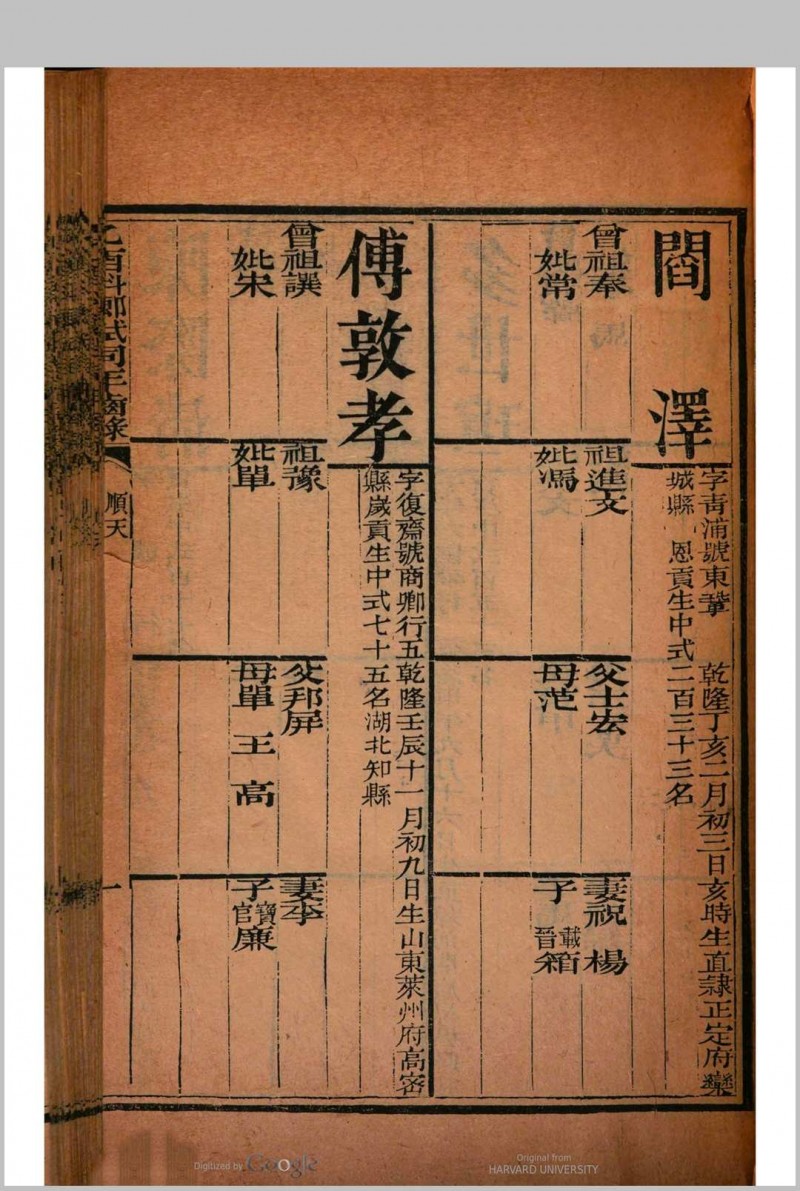 閻澤
字靑浦號東𦽦 乾隆丁亥二月初三日亥時生直隸正定府欒
城縣 恩貢生中式二百三十三名
曾祖奉
妣常
祖進文
妣馮
父士宏
母范
妻祝 楊
子載晉箱
傅敦孝
字復齋號商卿行五乾隆壬辰十一月初九日生山東萊州府高密
縣歲貢生中式七十五名湖北知縣
曾祖譔
妣宋
祖豫
妣單
父邦屏
母單 王 高
妻李
子寶官廉
乙酉科鄉試同年齒錄
順天
一
Digitized by Google
Original from
HARVARD UNIVERSITY